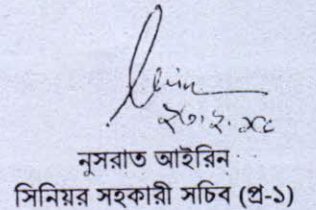 নুসরাত আইরিন
সিনিয়র সহকারী সচিব (প্র-১)